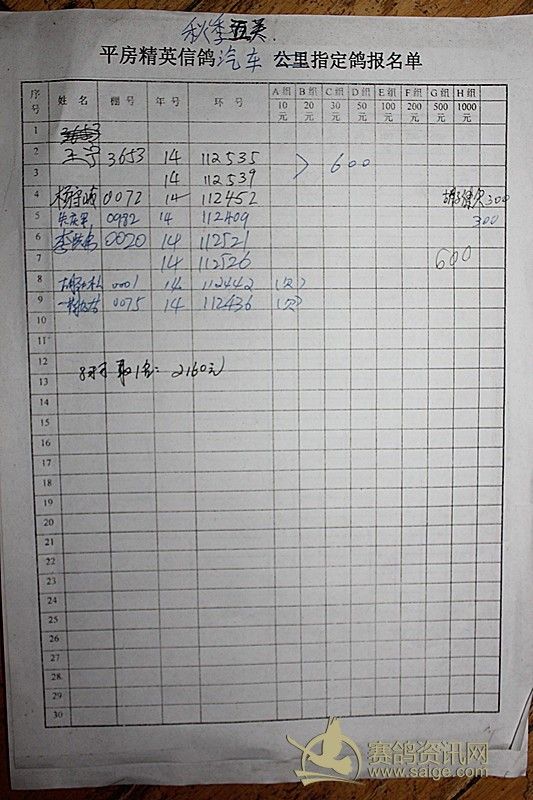 秋季五关
平房精英信鸽汽车公里指定鸽报名单
序号 姓名 棚号 年号 环号 A组 B组 C组 D组 E组 F组 G组 H组
10元 20元 30元 50元 100元 200元 500元 1000元
1 3653
2 王宁 3653 14 112535 600
3 14 112539
4 0072 14 112452 300
5 0982 14 112409 300
6 0020 14 112521
7 14 112526 600
8 0001 14 112442 (欠)
9 0075 14 112436 (欠)
10
11
12
13 取1名: 2160元
14
15
16
17
18
19
20
21
22
23
24
25
26
27
28
29
30
赛鸽资讯网
www.saige.com